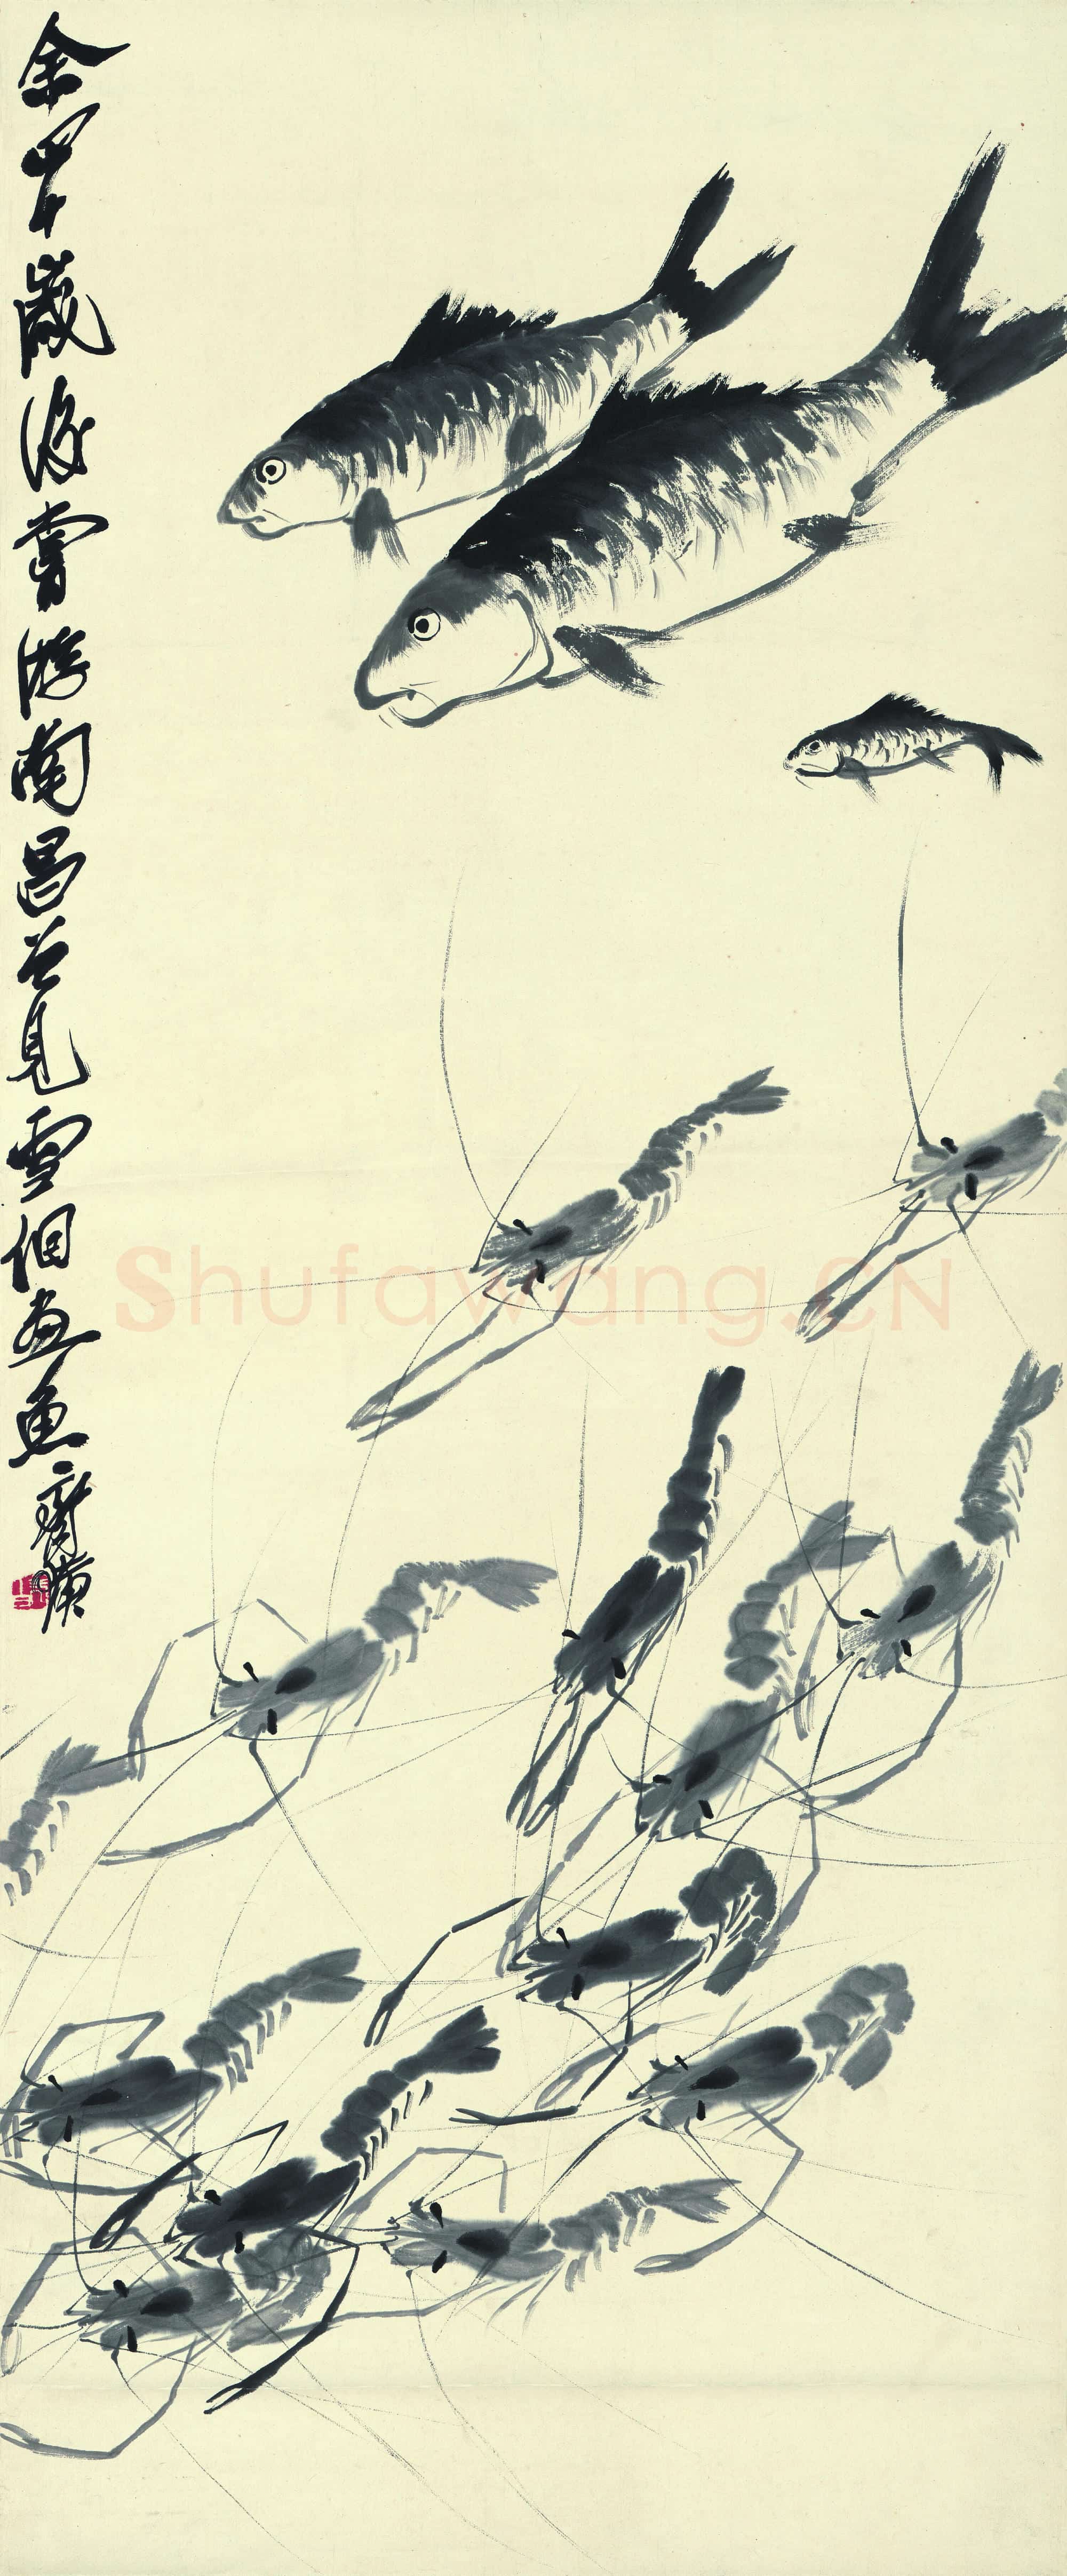 余四十歲後嘗游南昌曾見雪个画魚齊璜
Shufawang.CN